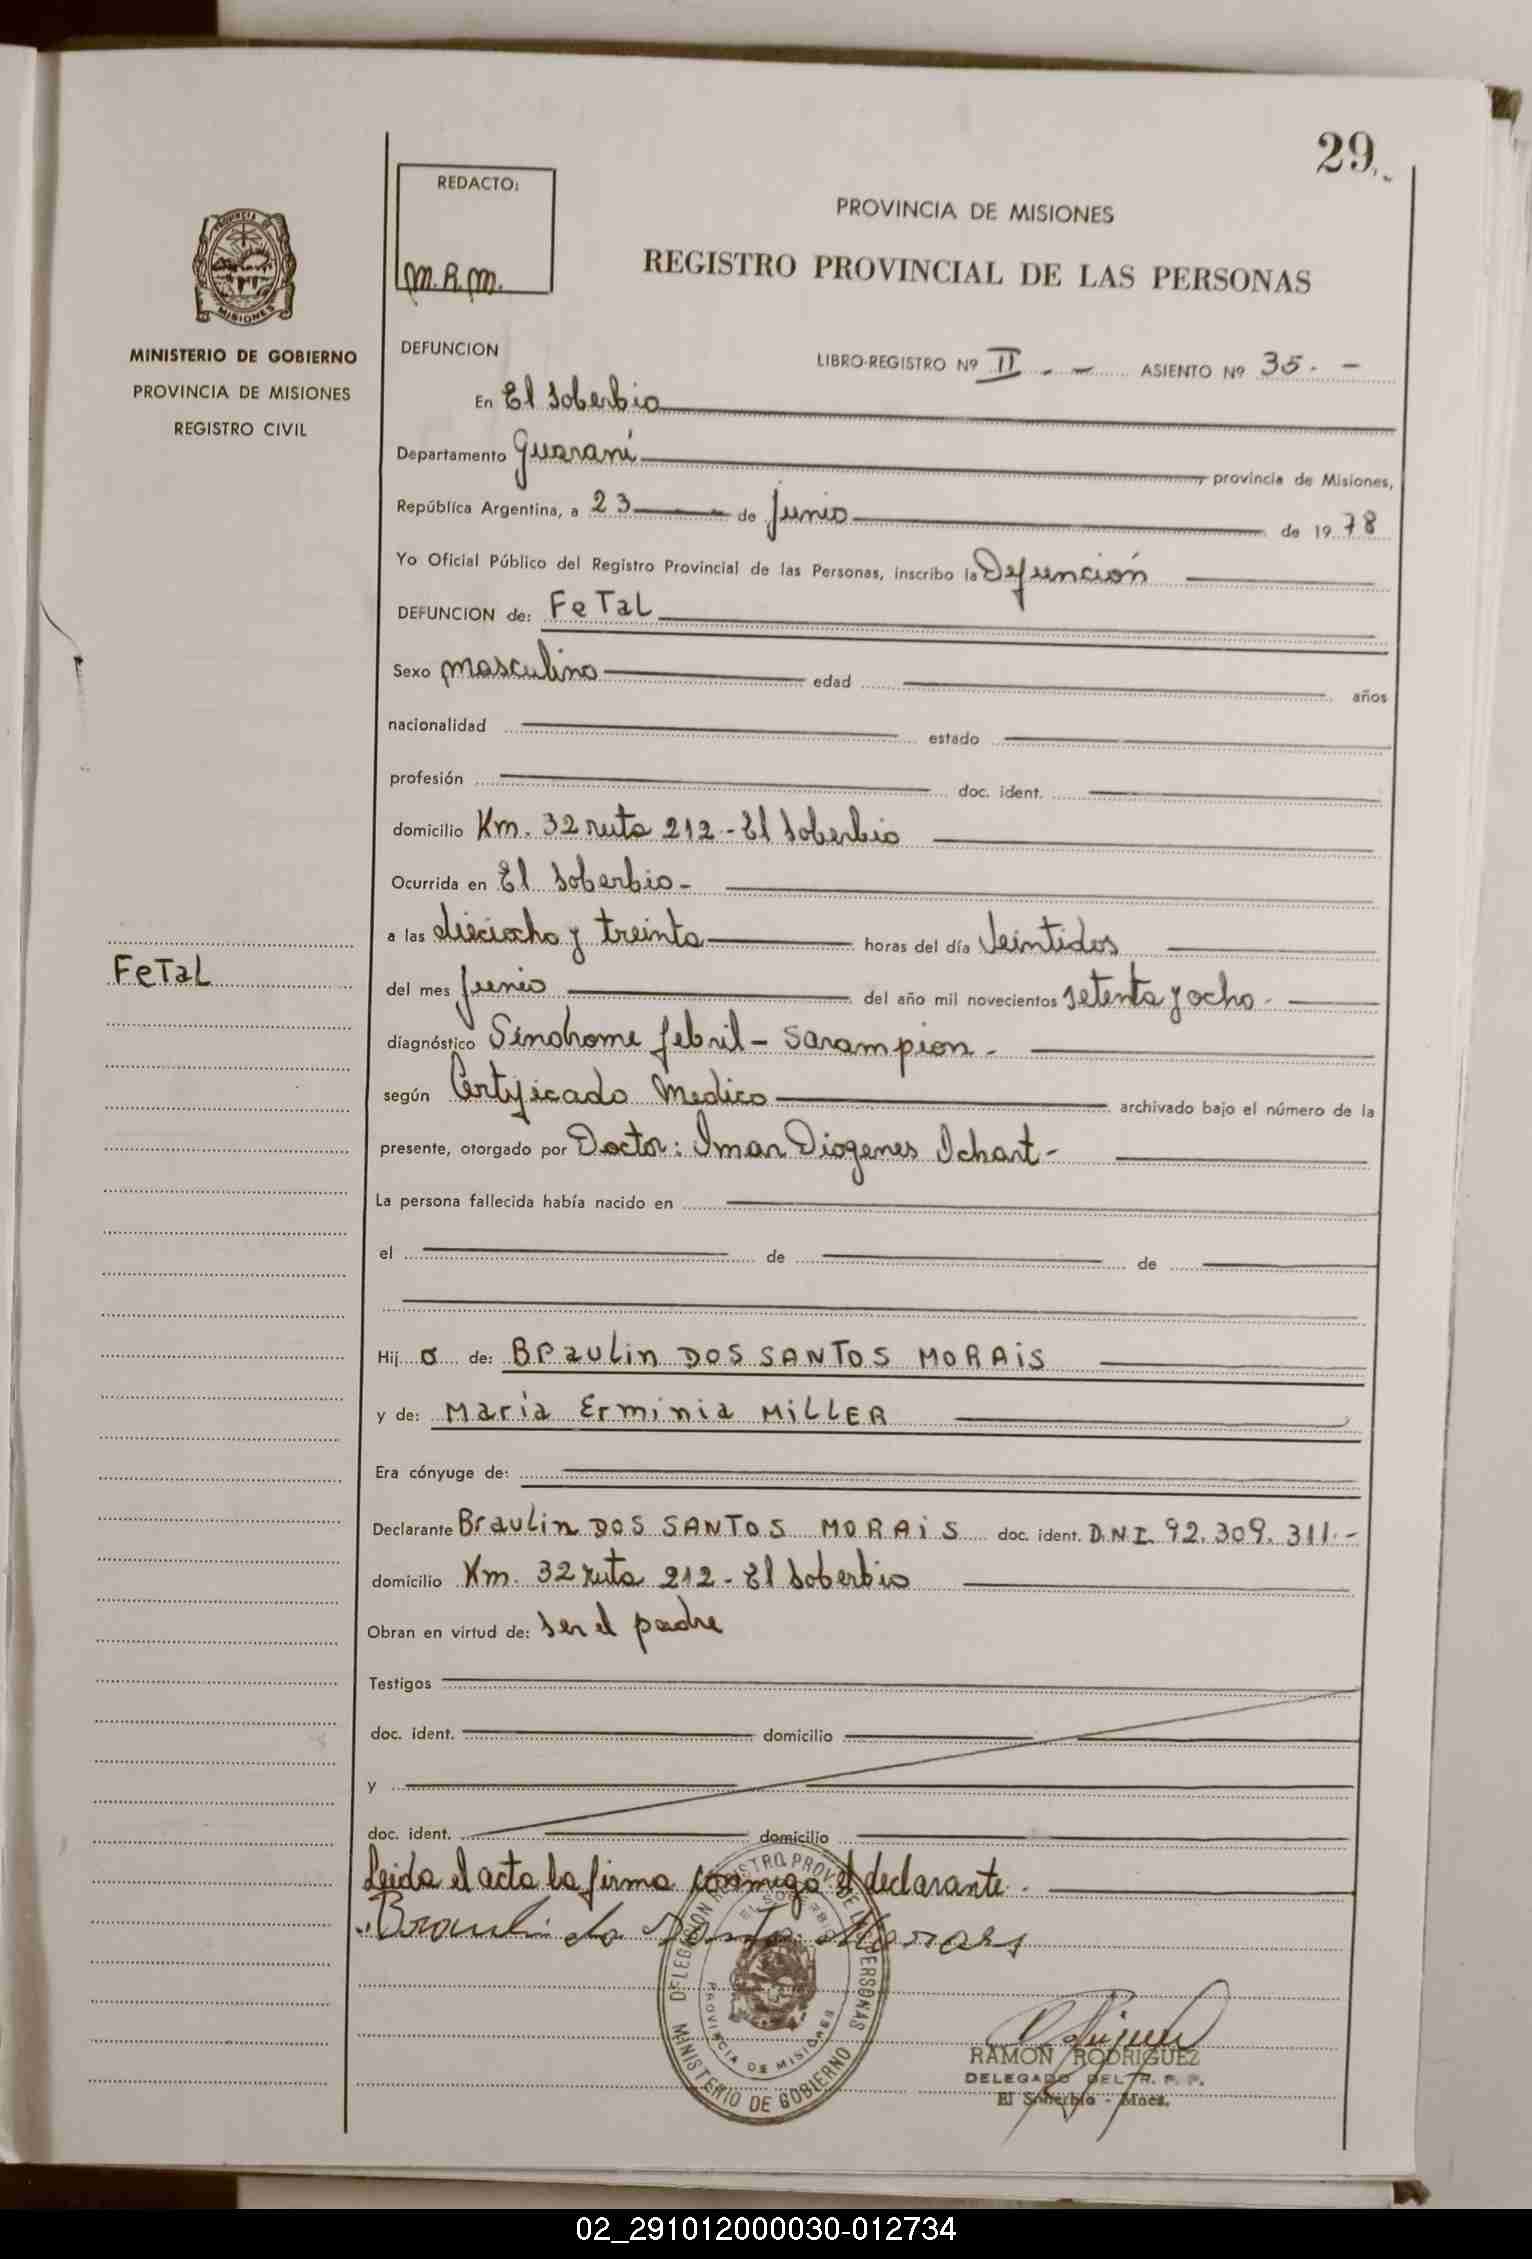 29.
REDACTO:
M.R.M.
PROVINCIA DE MISIONES
REGISTRO PROVINCIAL DE LAS PERSONAS
PROVINCIA DE
MISIONES
MINISTERIO DE GOBIERNO
PROVINCIA DE MISIONES
REGISTRO CIVIL
DEFUNCION
LIBRO-REGISTRO Nº II.- ASIENTO Nº 35.-
En El Soberbio
Departamento Guaraní provincia de Misiones,
República Argentina, a 23 de junio de 1978
Yo Oficial Público del Registro Provincial de las Personas, inscribo la Defunción
DEFUNCION de: FeTaL
Sexo masculino edad años
nacionalidad estado
profesión doc. ident.
domicilio Km. 32 ruta 212 - El Soberbio
Ocurrida en El Soberbio-
a las dieciocho y treinta horas del día Veintidos
FeTaL
del mes junio del año mil novecientos setenta y ocho-
diagnóstico Sindrome febril - Sarampion-
según Certificado Medico archivado bajo el número de la
presente, otorgado por Doctor: Imar Diogenes Ichart-
La persona fallecida había nacido en
el de de
Hijo de: Braulin DOS SANTOS MORAiS
y de: Maria Erminia MiLLER
Era cónyuge de:
Declarante Braulin DOS SANTOS MORAiS doc. ident. D.N.I. 92.309.311.-
domicilio Km. 32 ruta 212 - El Soberbio
Obran en virtud de: Ser el padre
Testigos
doc. ident. domicilio
y
doc. ident. domicilio
Leida el acta la firma conmigo el declarante.
Braulin do Santos Morais
DELEGACION REGISTRO PROV. DE LAS PERSONAS
EL SOBERBIO
PROVINCIA DE MISIONES
MINISTERIO DE GOBIERNO
RAMON RODRIGUEZ
DELEGADO DEL R. P. P.
El Soberbio - Mnes.
02_291012000030-012734